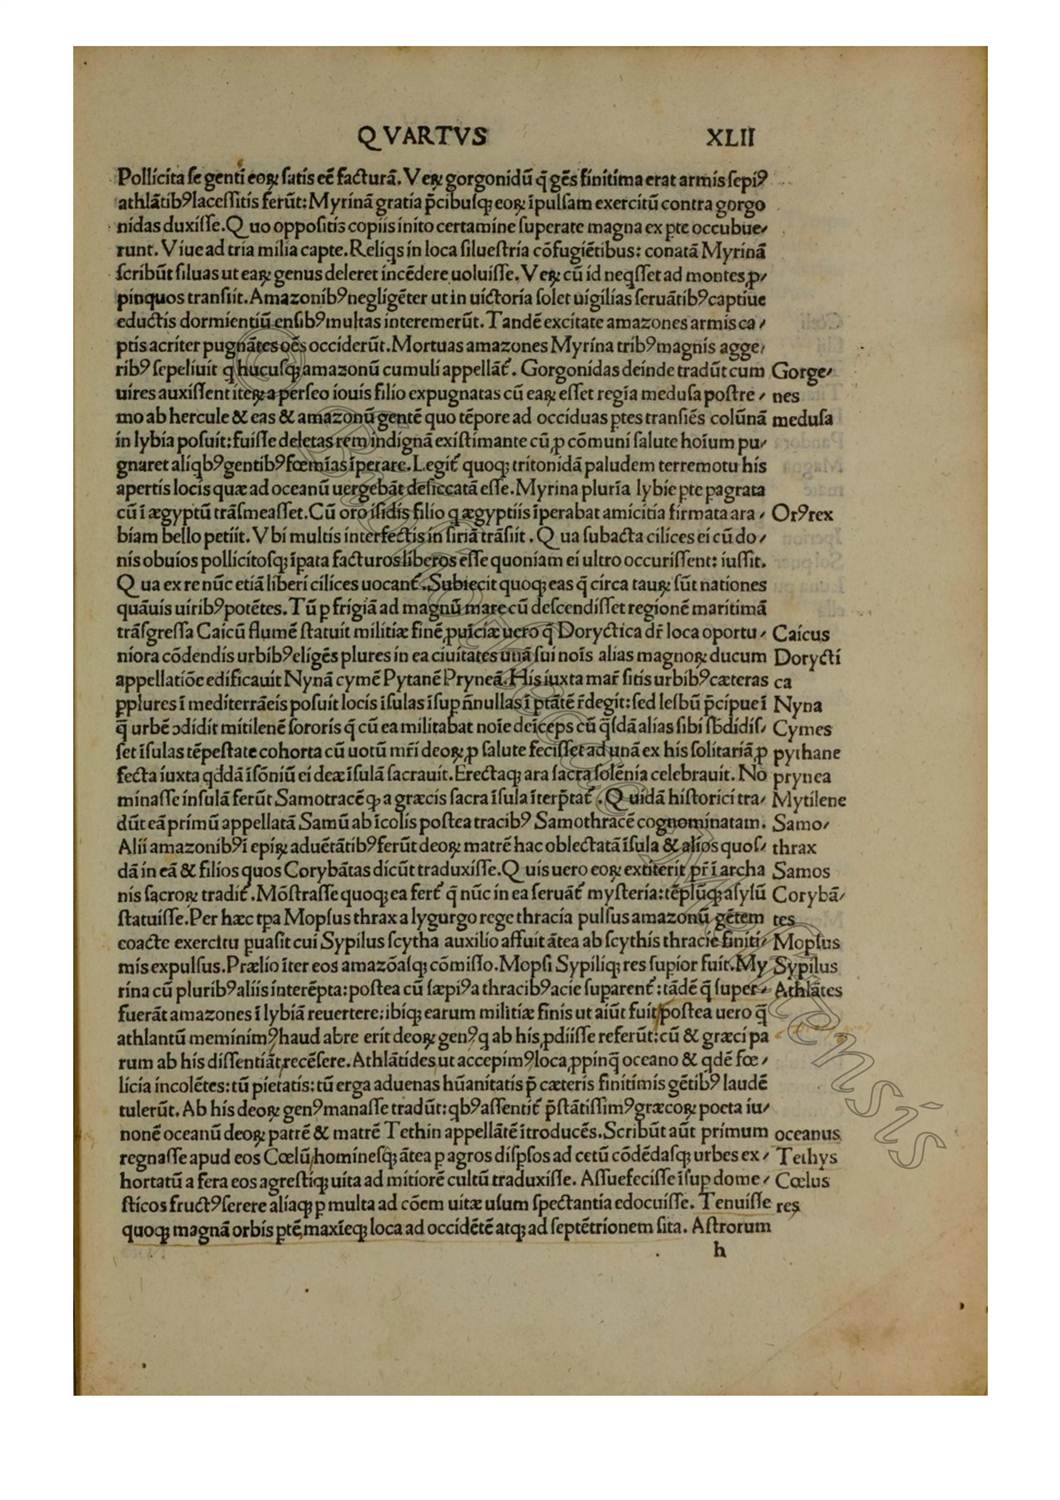 QVARTVS XLII
Pollicita se genti eoꝝ satis eē facturā. Veꝝ gorgonidū q̄ gēs finitima erat armis sepiꝰ
athlātibꝰ lacessitis ferūt: Myrinā gratia p̄cibusqꝫ eoꝝ īpulsam exercitū contra gorgo
nidas duxisse. Quo oppositis copiis inito certamine superate magna ex pte occubue⸗
runt. Viue ad tria milia capte. Reliq̄s in loca siluestria cōfugiētibus: conatā Myrinā
scribūt siluas ut eaꝝ genus deleret incēdere uoluisse. Veꝝ cū id neqsset ad montes ꝓ⸗
pinquos transiit. Amazonibꝰ negligēter ut in uictoria solet uigilias seruātibꝰ captiue
eductis dormientiū ensibꝰ multas interemerūt. Tandē excitate amazones armis ca⸗
ptis acriter pugnātes oēs occiderūt. Mortuas amazones Myrina tribꝰ magnis agge⸗
ribꝰ sepeliuit q hucusqꝫ amazonū cumuli appellāt᷑. Gorgonidas deinde tradūt cum Gorge⸗
uires auxissent iteꝝ a perseo iouis filio expugnatas cū eaꝝ esset regia medusa postre⸗ nes
mo ab hercule & eas & amazonū gentē quo tēpore ad occiduas ꝑtes transiēs colūnā medusa
in lybia posuit: fuisse deletas rem indignā existimante cū ꝓ cōmuni salute hoīum pu⸗
gnaret aliqbꝰ gentibꝰ fœmīas īperare. Legit᷑ quoqꝫ tritonidā paludem terremotu his
apertis locis quæ ad oceanū uergebāt desiccatā esse. Myrina pluria lybie ꝑte pagrata
cū ī ægyptū trāsmeasset. Cū oro isidis filio q ægyptiis īperabat amicitia firmata ara⸗ Orꝰ rex
biam bello petiit. Vbi multis interfectis in siriā trāsiit. Qua subacta cilices ei cū do⸗
nis obuios pollicitosqꝫ īpata facturos liberos esse quoniam ei ultro occurissent: iussit.
Qua ex re nūc etiā liberi cilices uocant᷑. Subiecit quoqꝫ eas q̄ circa tauꝝ sūt nationes
quāuis uiribꝰ potētes. Tū p frigiā ad magnū mare cū descendisset regionē maritimā
trāsgressa Caicū flumē statuit militiæ finē, puiciæ uero q̄ Doryctica dr̄ loca oportu⸗ Caicus
niora cōdendis urbibꝰ eligēs plures in ea ciuitates unā sui nois alias magnoꝝ ducum Dorycti
appellatiōe edificauit Nynā cymē Pytanē Pryneā. His iuxta mar̄ sitis urbibꝰ cæteras ca
pplures ī mediterrāeis posuit locis īsulas īsup n̄nullas ī ptātē r̄degit: sed lesbū p̄cipue ī Nyna
q̄ urbē ↄdidit mitilenē sororis q̄ cū ea militabat noie deīceps cū q̄sdā alias sibi sb̄didis⸗ Cymes
set īsulas tēpestate cohorta cū uotū mr̄i deoꝝ ꝓ salute fecisset ad unā ex his solitariā ꝓ pythane
fecta iuxta qddā īsōniū ei deæ īsulā sacrauit. Erectaqꝫ ara sacra solēnia celebrauit. No prynea
minasse insulā ferūt Samotracē qꝫ a græcis sacra īsula īterp̄tat᷑. Quidā historici tra⸗ Mytilene
dūt eā primū appellatā Samū ab īcolis postea tracibꝰ Samothracē cognominatam. Samo⸗
Alii amazonibꝰ ī epiꝝ aduētātibꝰ ferūt deoꝝ matrē hac oblectatā īsula & alios quos⸗ thrax
dā in eā & filios quos Corybātas dicūt traduxisse. Quis uero eoꝝ extiterit pr̄ ī archa Samos
nis sacroꝝ tradit᷑. Mōstrasse quoqꝫ ea fert᷑ q̄ nūc in ea seruāt᷑ mysteria: tēplūqꝫ asylū Corybā⸗
statuisse. Per hæc tpa Mopsus thrax a lygurgo rege thracia pulsus amazonū gētem tes
coacte exercitu puasit cui Sypilus scytha auxilio affuit ātea ab scythis thracie finiti⸗ Mopsus
mis expulsus. Prælio īter eos amazōasqꝫ cōmisso. Mopsi Sypiliqꝫ res supior fuit. My Sypilus
rina cū pluribꝰ aliis interēpta: postea cū sæpiꝰ a thracibꝰ acie suparent᷑: tādē q̄ super⸗ Athlātes
fuerāt amazones ī lybiā reuertere: ibiqꝫ earum militiæ finis ut aiūt fuit, postea uero q̄
athlantū meminimꝰ haud abre erit deoꝝ genꝰ q ab his ꝓdiisse referūt: cū & græci pa
rum ab his dissentiāt, recēsere. Athlātides ut accepimꝰ loca ꝓpinq̄ oceano & qdē fœ⸗
licia incolētes: tū pietatis: tū erga aduenas hūanitatis p̄ cæteris finitimis gētibꝰ laudē
tulerūt. Ab his deoꝝ genꝰ manasse tradūt: qbꝰ assentit᷑ p̄stātissimꝰ græcoꝝ poeta iu⸗
nonē oceanū deoꝝ patrē & matrē Tethin appellātē ītroducēs. Scribūt aūt primum oceanus
regnasse apud eos Cœlū, hominesqꝫ ātea p agros disp̄sos ad cetū cōdēdasqꝫ urbes ex⸗ Tethys
hortatū a fera eos agrestiqꝫ uita ad mitiorē cultū traduxisse. Assuefecisse īsup dome⸗ Cœlus
sticos fructꝰ serere aliaqꝫ p multa ad cōem uitæ usum spectantia edocuisse. Tenuisse res
quoqꝫ magnā orbis ptē, maxīeqꝫ loca ad occidētē atqꝫ ad septētrionem sita. Astrorum
h